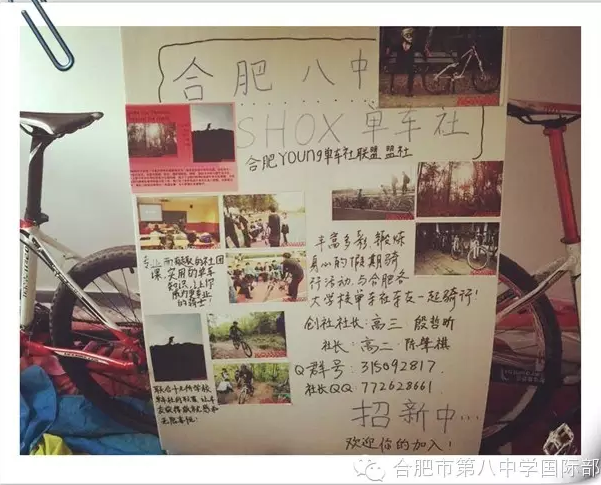 合肥八中
SHOX单车社
合肥Young单车社联盟盟社
专业而有趣的社团
课,实用的单车
知识,让你
成为专业
的骑士!
丰富多彩,锻炼
身心的假期骑
行活动,与合肥各
大学校单车社车友一起骑行!
创社社长:高三 殷哲昕
社长:高二 陈肇祺
Q群号:315092817
社长QQ:772628661
联合十九所学校
招新中...
欢迎你的加入!
合肥市第八中学国际部